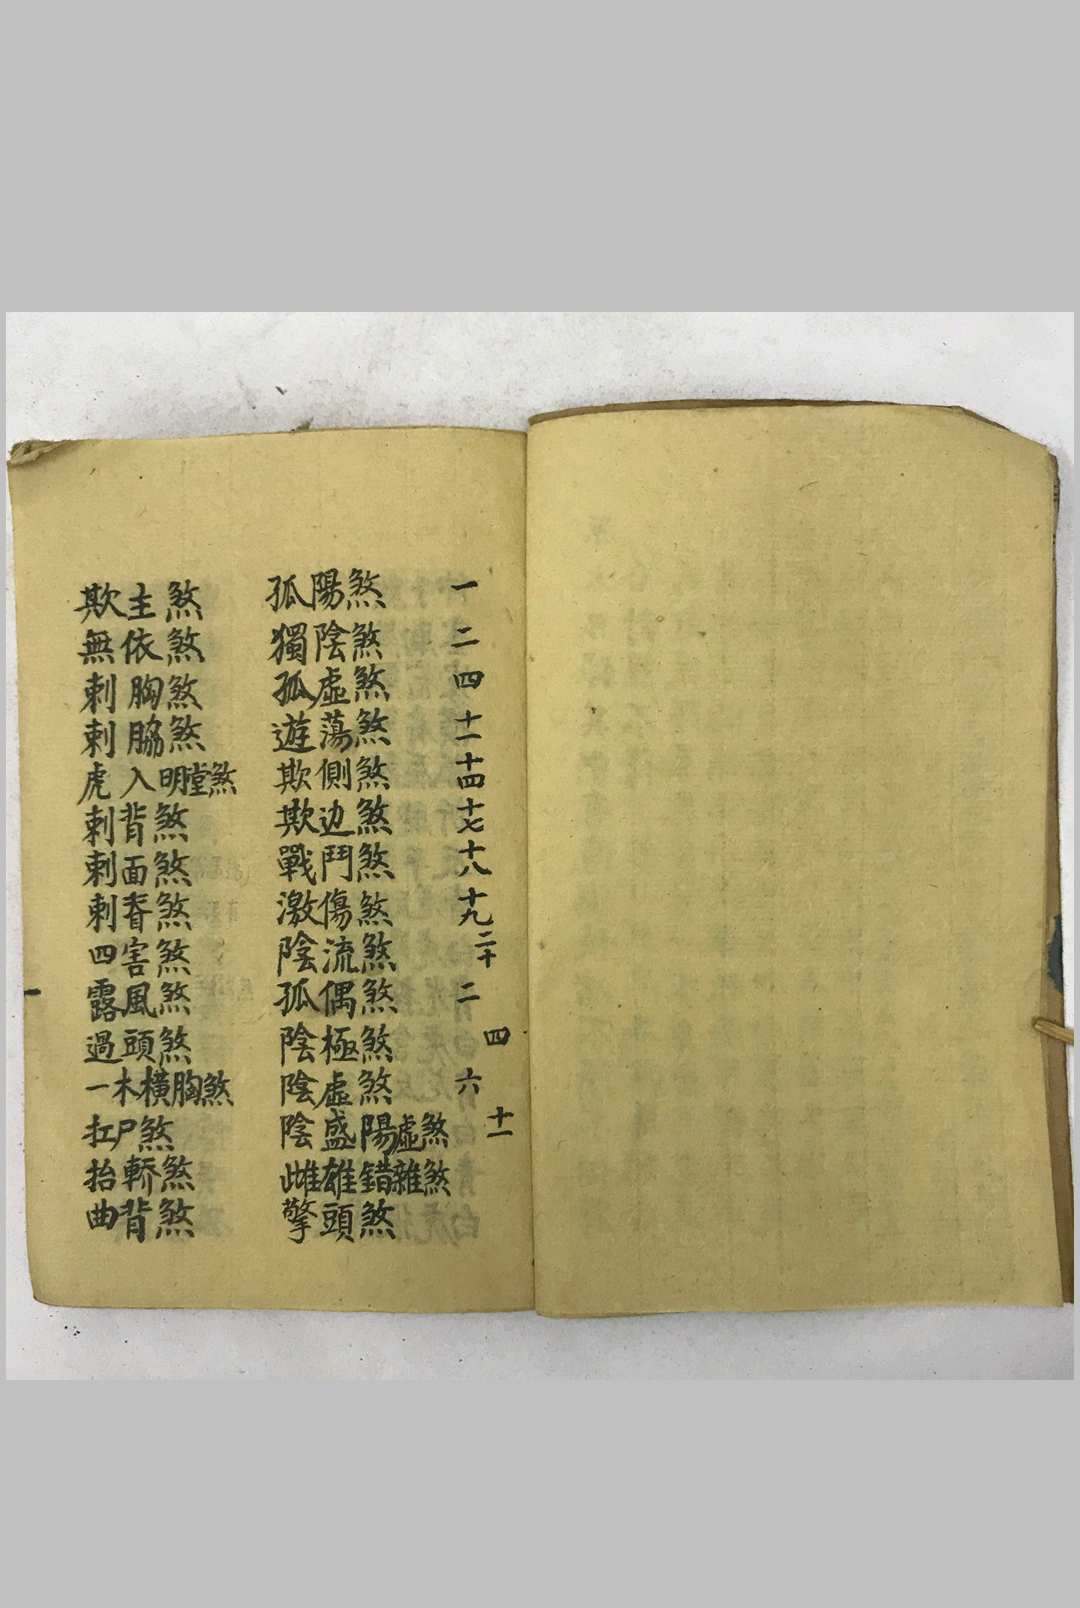 孤陽煞 一
獨陰煞 二
孤虛煞 四
遊蕩煞 十一
欺側煞 十四
欺边煞 十七
戰鬥煞 十八
激傷煞 十九
陰流煞 二十
孤偶煞 二
陰極煞 四
陰虛煞 六
陰盛陽虛煞 十一
雌雄錯雜煞
擎頭煞
欺主煞
無依煞
刺胸煞
刺脇煞
虎入明膛煞
刺背煞
刺面煞
刺脊煞
四害煞
露風煞
過頭煞
一木橫胸煞
扛尸煞
抬轎煞
曲背煞